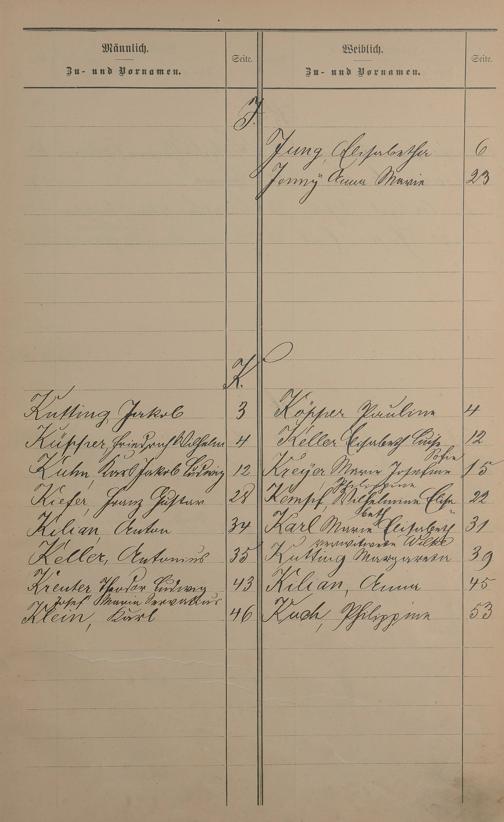 Männlich. Seite. Weiblich. Seite.
Zu- und Vornamen. Zu- und Vornamen.
J.
Jung, Elisabetha 6
Jenny Anna Marie 23
K.
Kutting, Jakob 3 Köpper Pauline 4
Küpper, Friedrich Wilhelm 4 Keller Elisabeth Luise 12
Sofie
Kuhn, Karl Jakob Ludwig 12 Kreyer Marie Josefine 15
Philippine
Kiefer, Franz Gustav 28 Kempf, Wilhelmine Elisa= 22
beth
Kilian, Anton 34 Karl Marie Elisabeth 31
verwitwete
Keller, Antonius 35 Kutting Margareta 39
Kreuter, Theodor Ludwig 43 Kilian, Anna 45
Josef Maria Servatius
Klein, Karl 46 Koch, Philippine 53